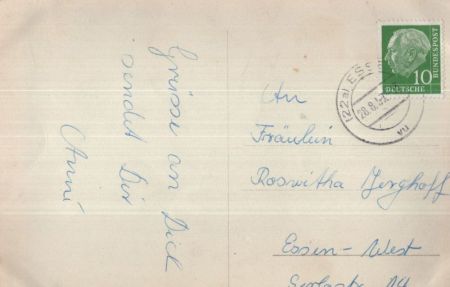 Grüsse an Dich
sendet Dir
Anni
10
DEUTSCHE
BUNDESPOST
(22a) ESS
28.8.5
An
Fräulein
Roswitha Jerghoff
Essen-West
14